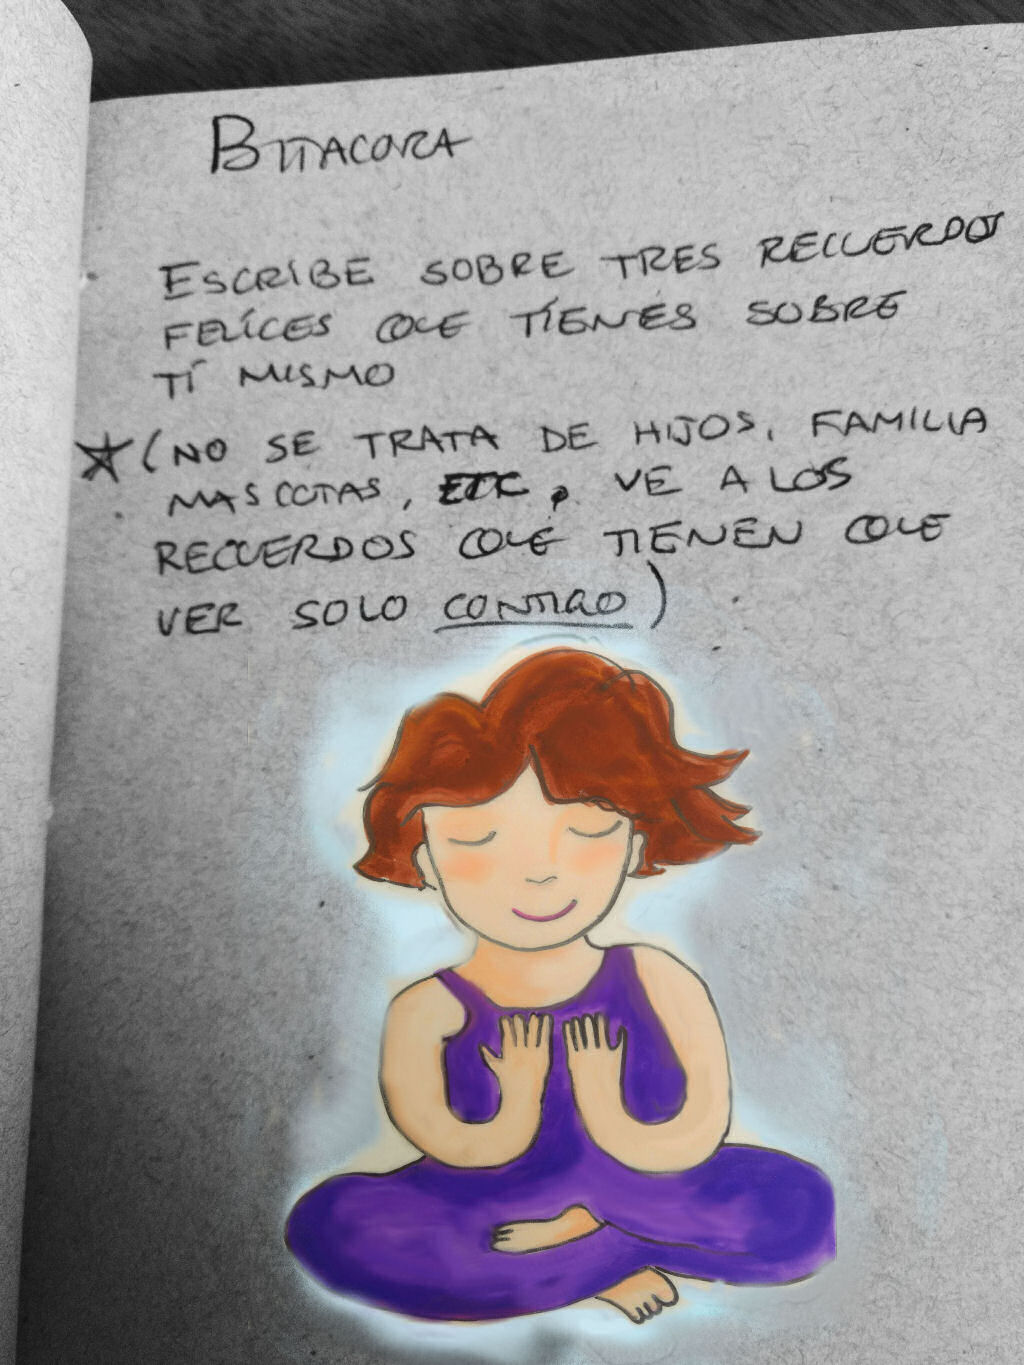 BITACORA
ESCRIBE SOBRE TRES RECUERDOS
FELICES QUE TIENES SOBRE
TÍ MISMO
(NO SE TRATA DE HIJOS, FAMILIA
MASCOTAS, ETC, VE A LOS
RECUERDOS QUE TIENEN QUE
VER SOLO CONTIGO)